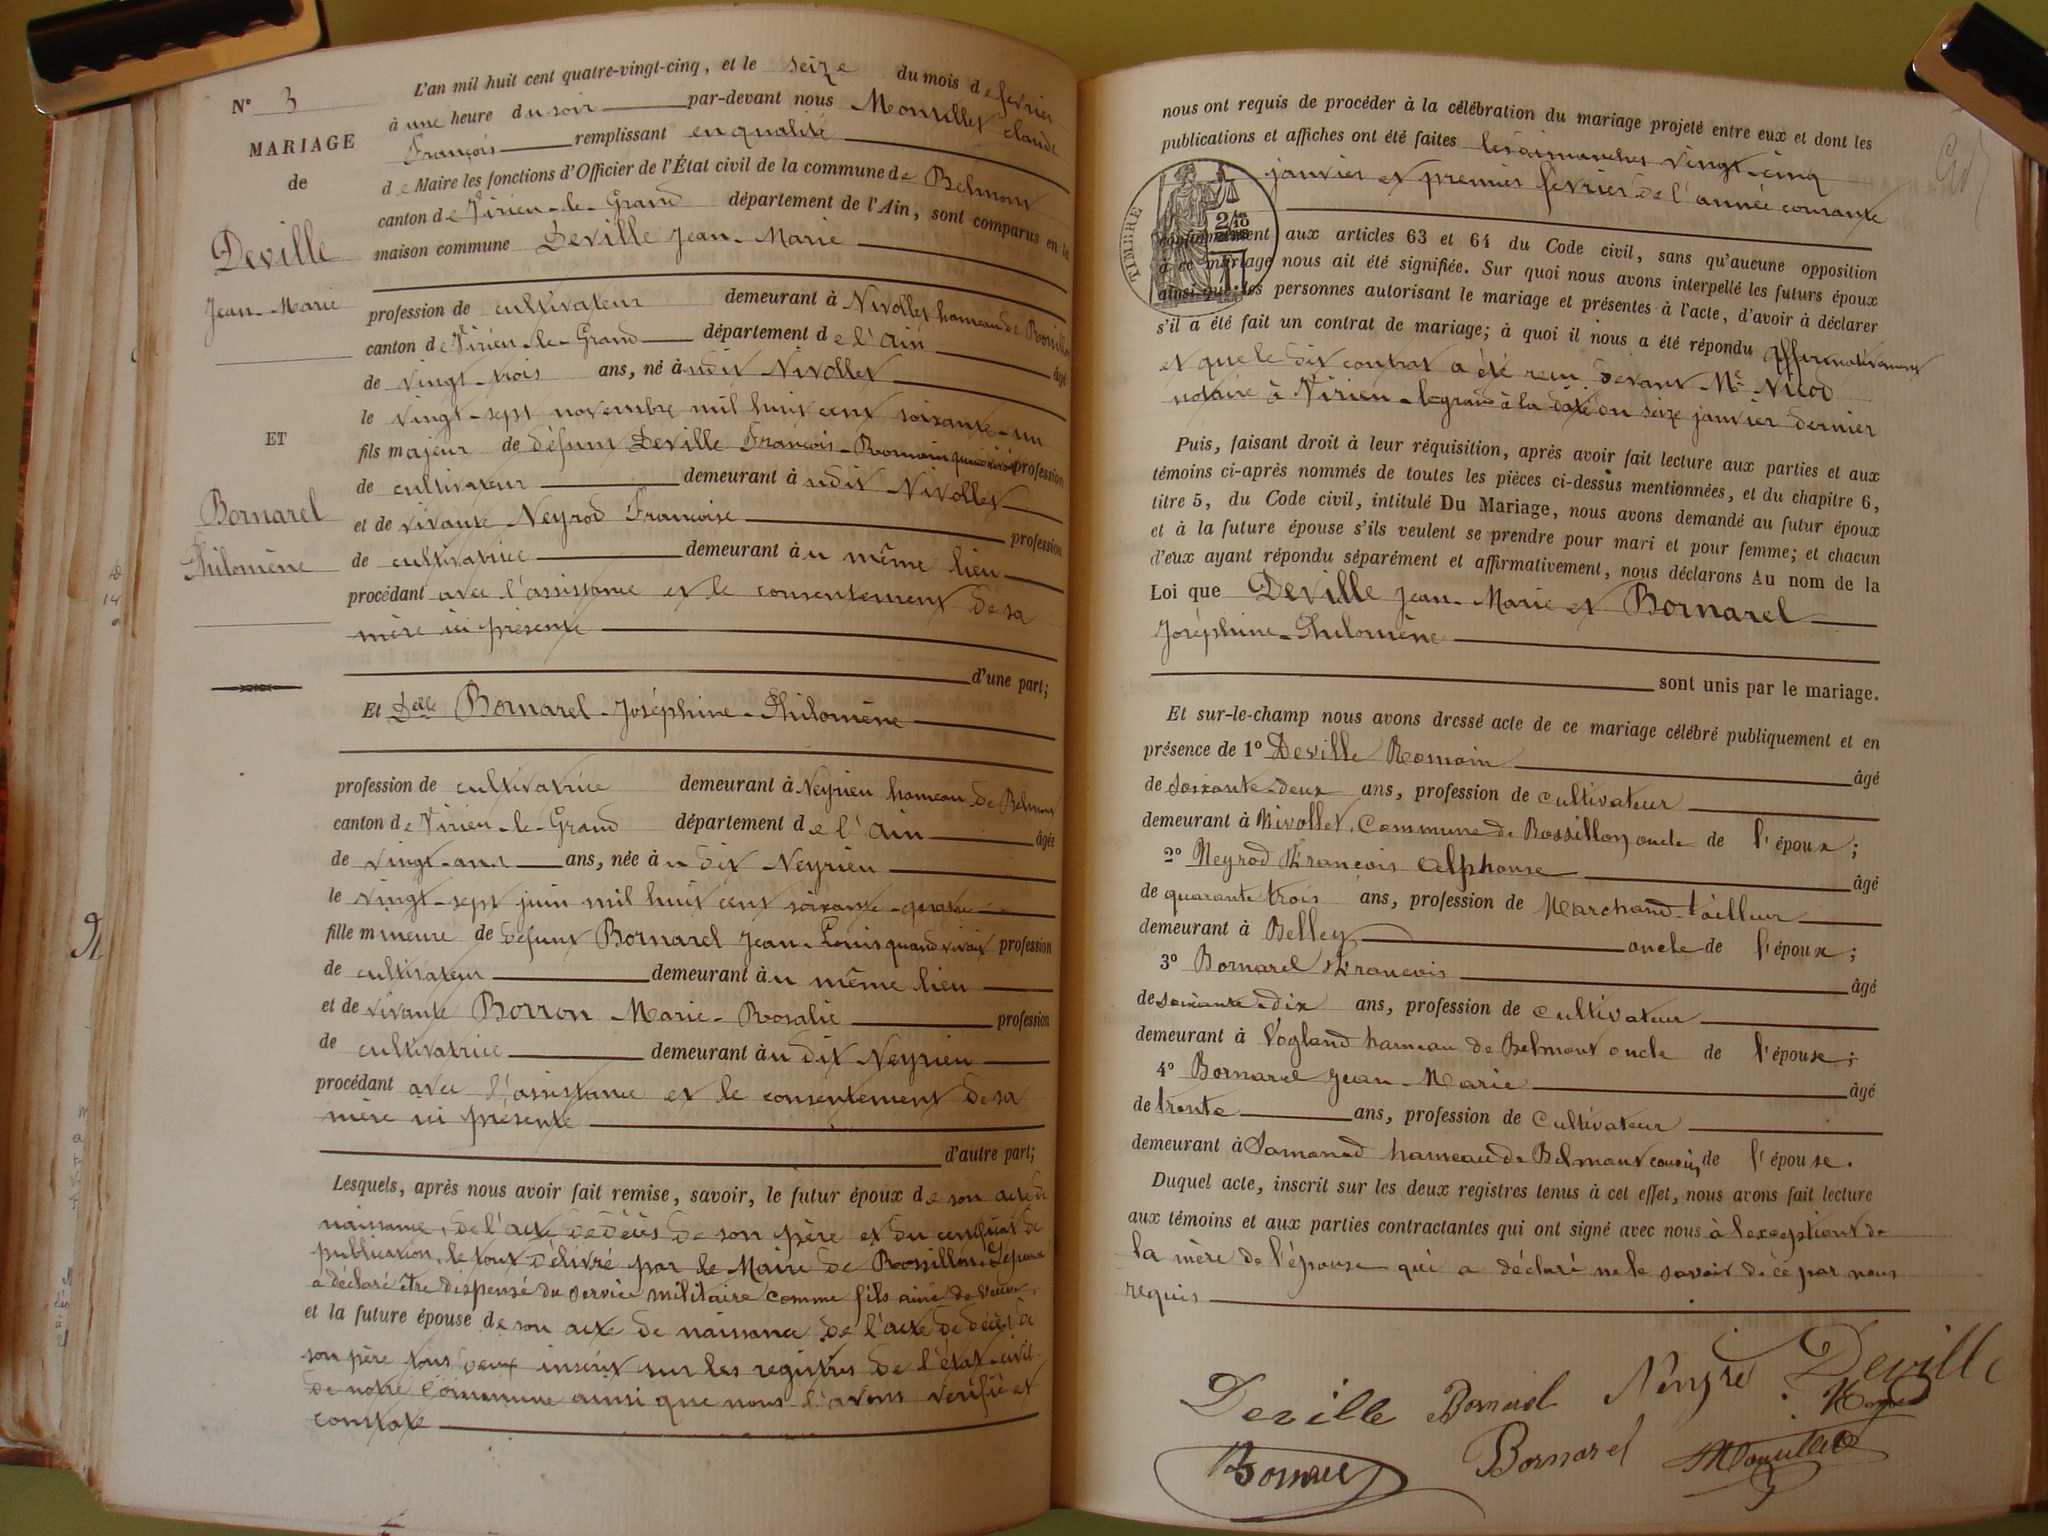 N° 3
MARIAGE
de
Deville
Jean-Marie
ET
Bornarel
Philomène
L'an mil huit cent quatre-vingt-cinq, et le seize du mois de février
à une heure du soir par-devant nous Monillet Claude
François remplissant en qualité
de Maire les fonctions d'Officier de l'État civil de la commune de Belmont
canton de Virieu-le-Grand département de l'Ain, sont comparus en la
maison commune Deville Jean-Marie
profession de cultivateur demeurant à Nivollet hameau de Rossillon
canton de Virieu-le-Grand département de l'Ain âgé
de vingt-trois ans, né audit Nivollet
le vingt-sept novembre mil huit cent soixante-un
fils majeur de défunt Deville François-Romain quand vivait profession
de cultivateur demeurant audit Nivollet
et de vivante Neyrod Françoise profession
de cultivatrice demeurant au même lieu
procédant avec l'assistance et le consentement de sa
mère ici présente
d'une part;
Et Delle Bornarel Joséphine-Philomène
profession de cultivatrice demeurant à Neyrieu hameau de Belmont
canton de Virieu-le-Grand département de l'Ain âgée
de vingt ans, née audit Neyrieu
le vingt-sept juin mil huit cent soixante-quatre
fille mineure de défunt Bornarel Jean-Louis quand vivait profession
de cultivateur demeurant au même lieu
et de vivante Borron Marie-Rosalie profession
de cultivatrice demeurant audit Neyrieu
procédant avec l'assistance et le consentement de sa
mère ici présente
d'autre part;
Lesquels, après nous avoir fait remise, savoir, le futur époux de son acte de
naissance, de l'acte de décès de son père et du certificat de
publication, le tout délivré par le Maire de Rossillon. L'époux
a déclaré être dispensé du service militaire comme fils ainé de veuve,
et la future épouse de son acte de naissance de l'acte de décès de
son père tous deux inscrit sur les registres de l'état-civil
de notre commune ainsi que nous l'avons vérifié et
constaté
nous ont requis de procéder à la célébration du mariage projeté entre eux et dont les
publications et affiches ont été faites les dimanches vingt-cinq
janvier et premier février de l'année courante
TIMBRE
conformément aux articles 63 et 64 du Code civil, sans qu'aucune opposition
à ce mariage nous ait été signifiée. Sur quoi nous avons interpellé les futurs époux
ainsi que les personnes autorisant le mariage et présentes à l'acte, d'avoir à déclarer
s'il a été fait un contrat de mariage; à quoi il nous a été répondu affirmativement
et que le dit contrat a été reçu devant Me Nicod
notaire à Virieu-legrand à la date du seize janvier dernier
Puis, faisant droit à leur réquisition, après avoir fait lecture aux parties et aux
témoins ci-après nommés de toutes les pièces ci-dessus mentionnées, et du chapitre 6,
titre 5, du Code civil, intitulé Du Mariage, nous avons demandé au futur époux
et à la future épouse s'ils veulent se prendre pour mari et pour femme; et chacun
d'eux ayant répondu séparément et affirmativement, nous déclarons Au nom de la
Loi que Deville Jean-Marie et Bornarel
Joséphine-Philomène
sont unis par le mariage.
Et sur-le-champ nous avons dressé acte de ce mariage célébré publiquement et en
présence de 1° Deville Romain âgé
de soixante-deux ans, profession de cultivateur
demeurant à Nivollet, Commune de Rossillon, oncle de l'époux;
2° Neyrod François Alphonse âgé
de quarante trois ans, profession de Marchand-tailleur
demeurant à Belley oncle de l'époux;
3° Bornarel François âgé
de soixante-dix ans, profession de cultivateur
demeurant à Vogland hameau de Belmont oncle de l'épouse;
4° Bornarel Jean-Marie âgé
de trente ans, profession de Cultivateur
demeurant à Samonod hameau de Belmont cousin, de l'épouse.
Duquel acte, inscrit sur les deux registres tenus à cet effet, nous avons fait lecture
aux témoins et aux parties contractantes qui ont signé avec nous à l'exception de
la mère de l'épouse qui a déclaré ne le savoir de ce par nous
requis
Deville Bornarel Deville
Bornarel